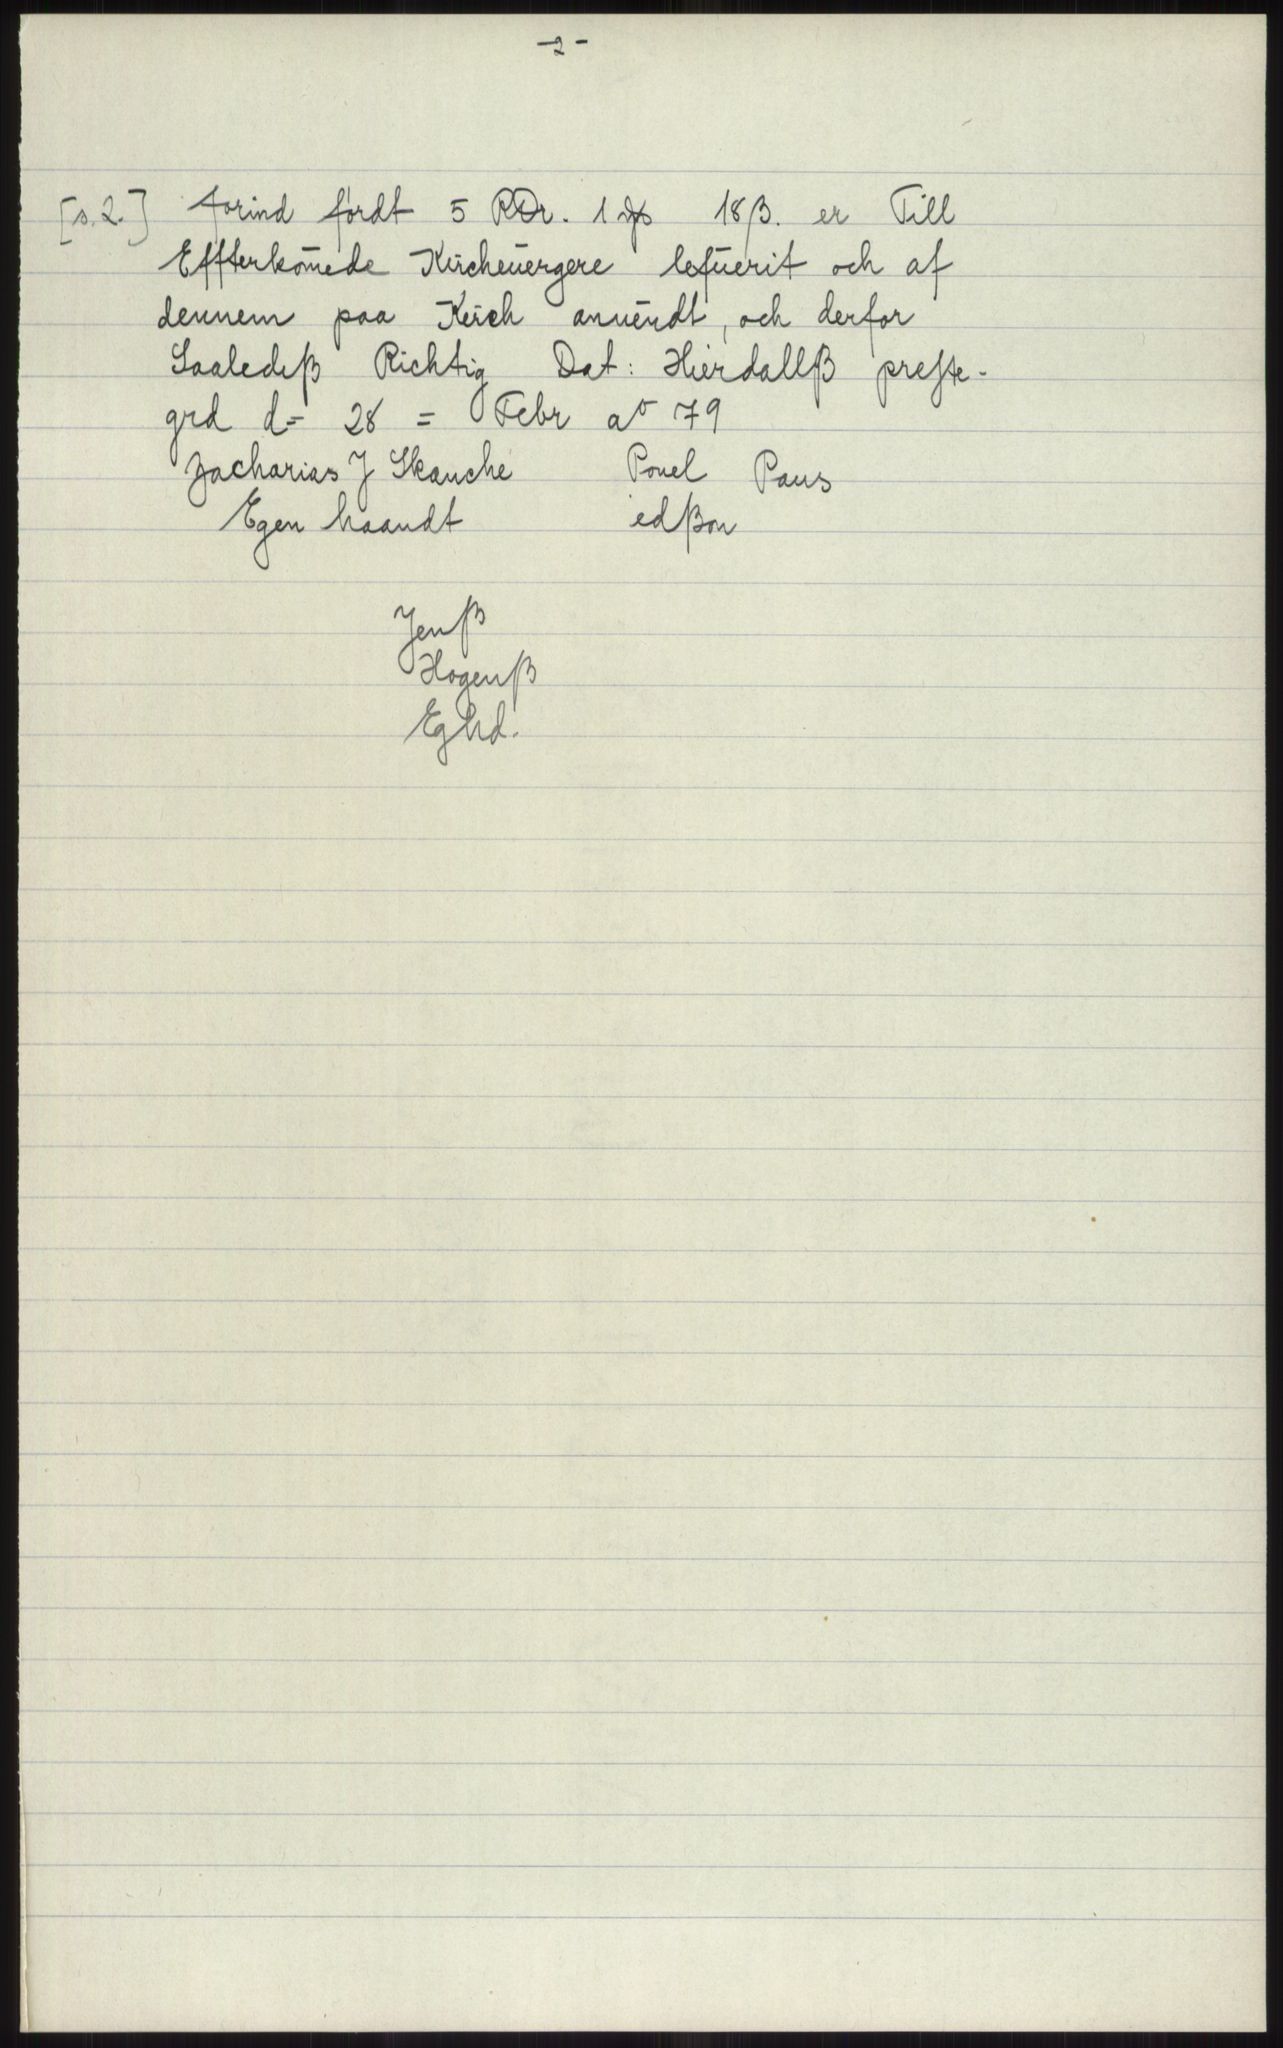 -2-
[s.2.] forind fördt 5 RDr. 1 18ß. er Till
Effterkom̄ede Kircheuergere lefuerit och af
dennem paa Kirch anuendt, och derfor
Saaledß Richtig Dat: Hierdallß preste-
grd d= 28 = Febr aº 79
Zacharias J Skanche Pouel Paus
Egen haandt edßon
Jenß
Hogenß
Eghd.